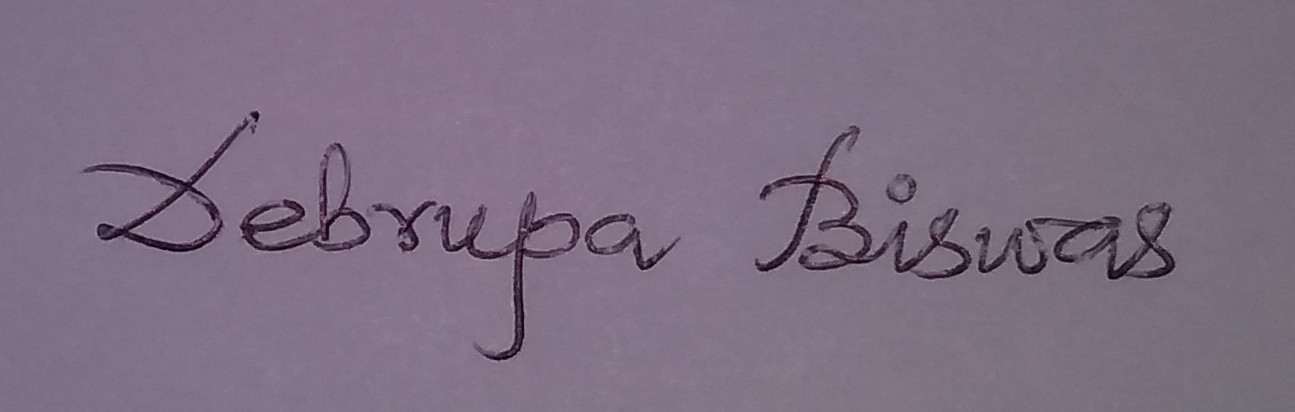 Debrupa Biswas